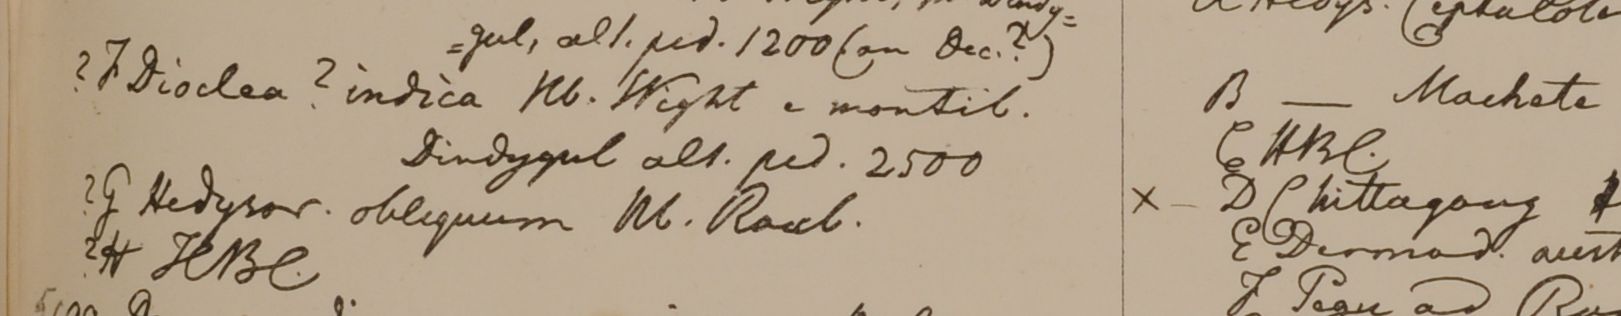 =gul, alt. ped. 1200 (an Dec.?)
? F Dioclea ? indica Hb. Wight e montib.
Dindygul alt. ped. 2500
? G Hedysar. obliquum Hb. Roxb.
? H HBC.
B — Machete
C HBC.
× – D Chittagong
E Dermod.
F Pegu ad